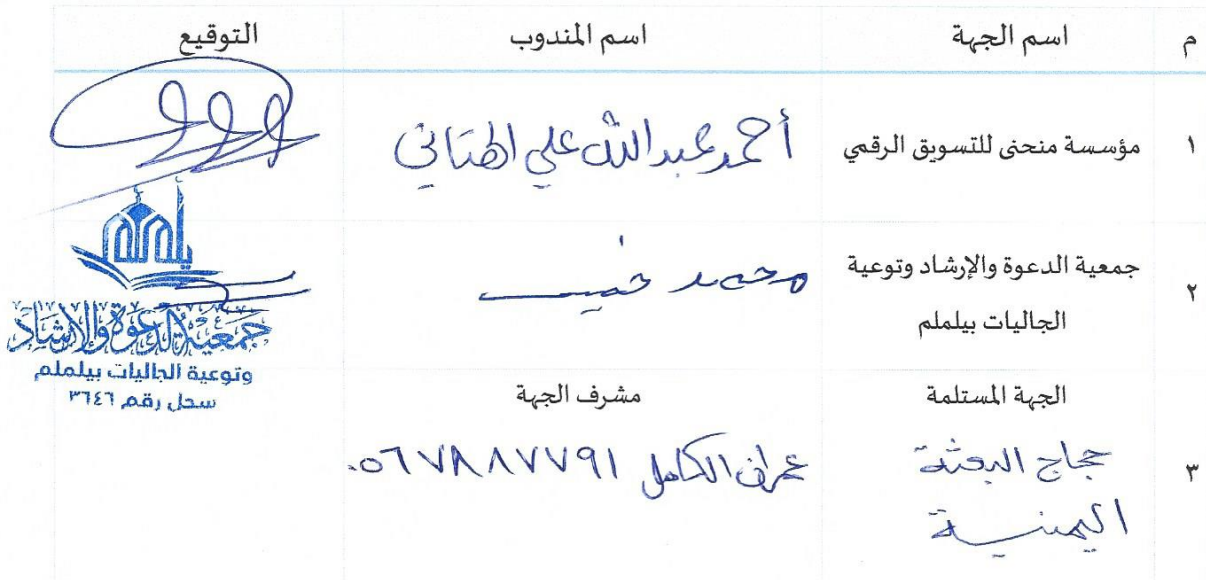 م اسم الجهة اسم المندوب التوقيع
١ مؤسسة منحنى للتسويق الرقمي أحمد عبدالله علي الهتاني
جمعية الدعوة والإرشاد وتوعية
٢ محمد خميس
الجاليات بيلملم
يلملم
جمعية الدعوة والإرشاد
وتوعية الجاليات بيلملم
سجل رقم ٣٦٤٦
الجهة المستلمة مشرف الجهة
٣ حجاج البعثة عمران الكامل ٠٥٦٧٨٨٧٧٩١
اليمنية